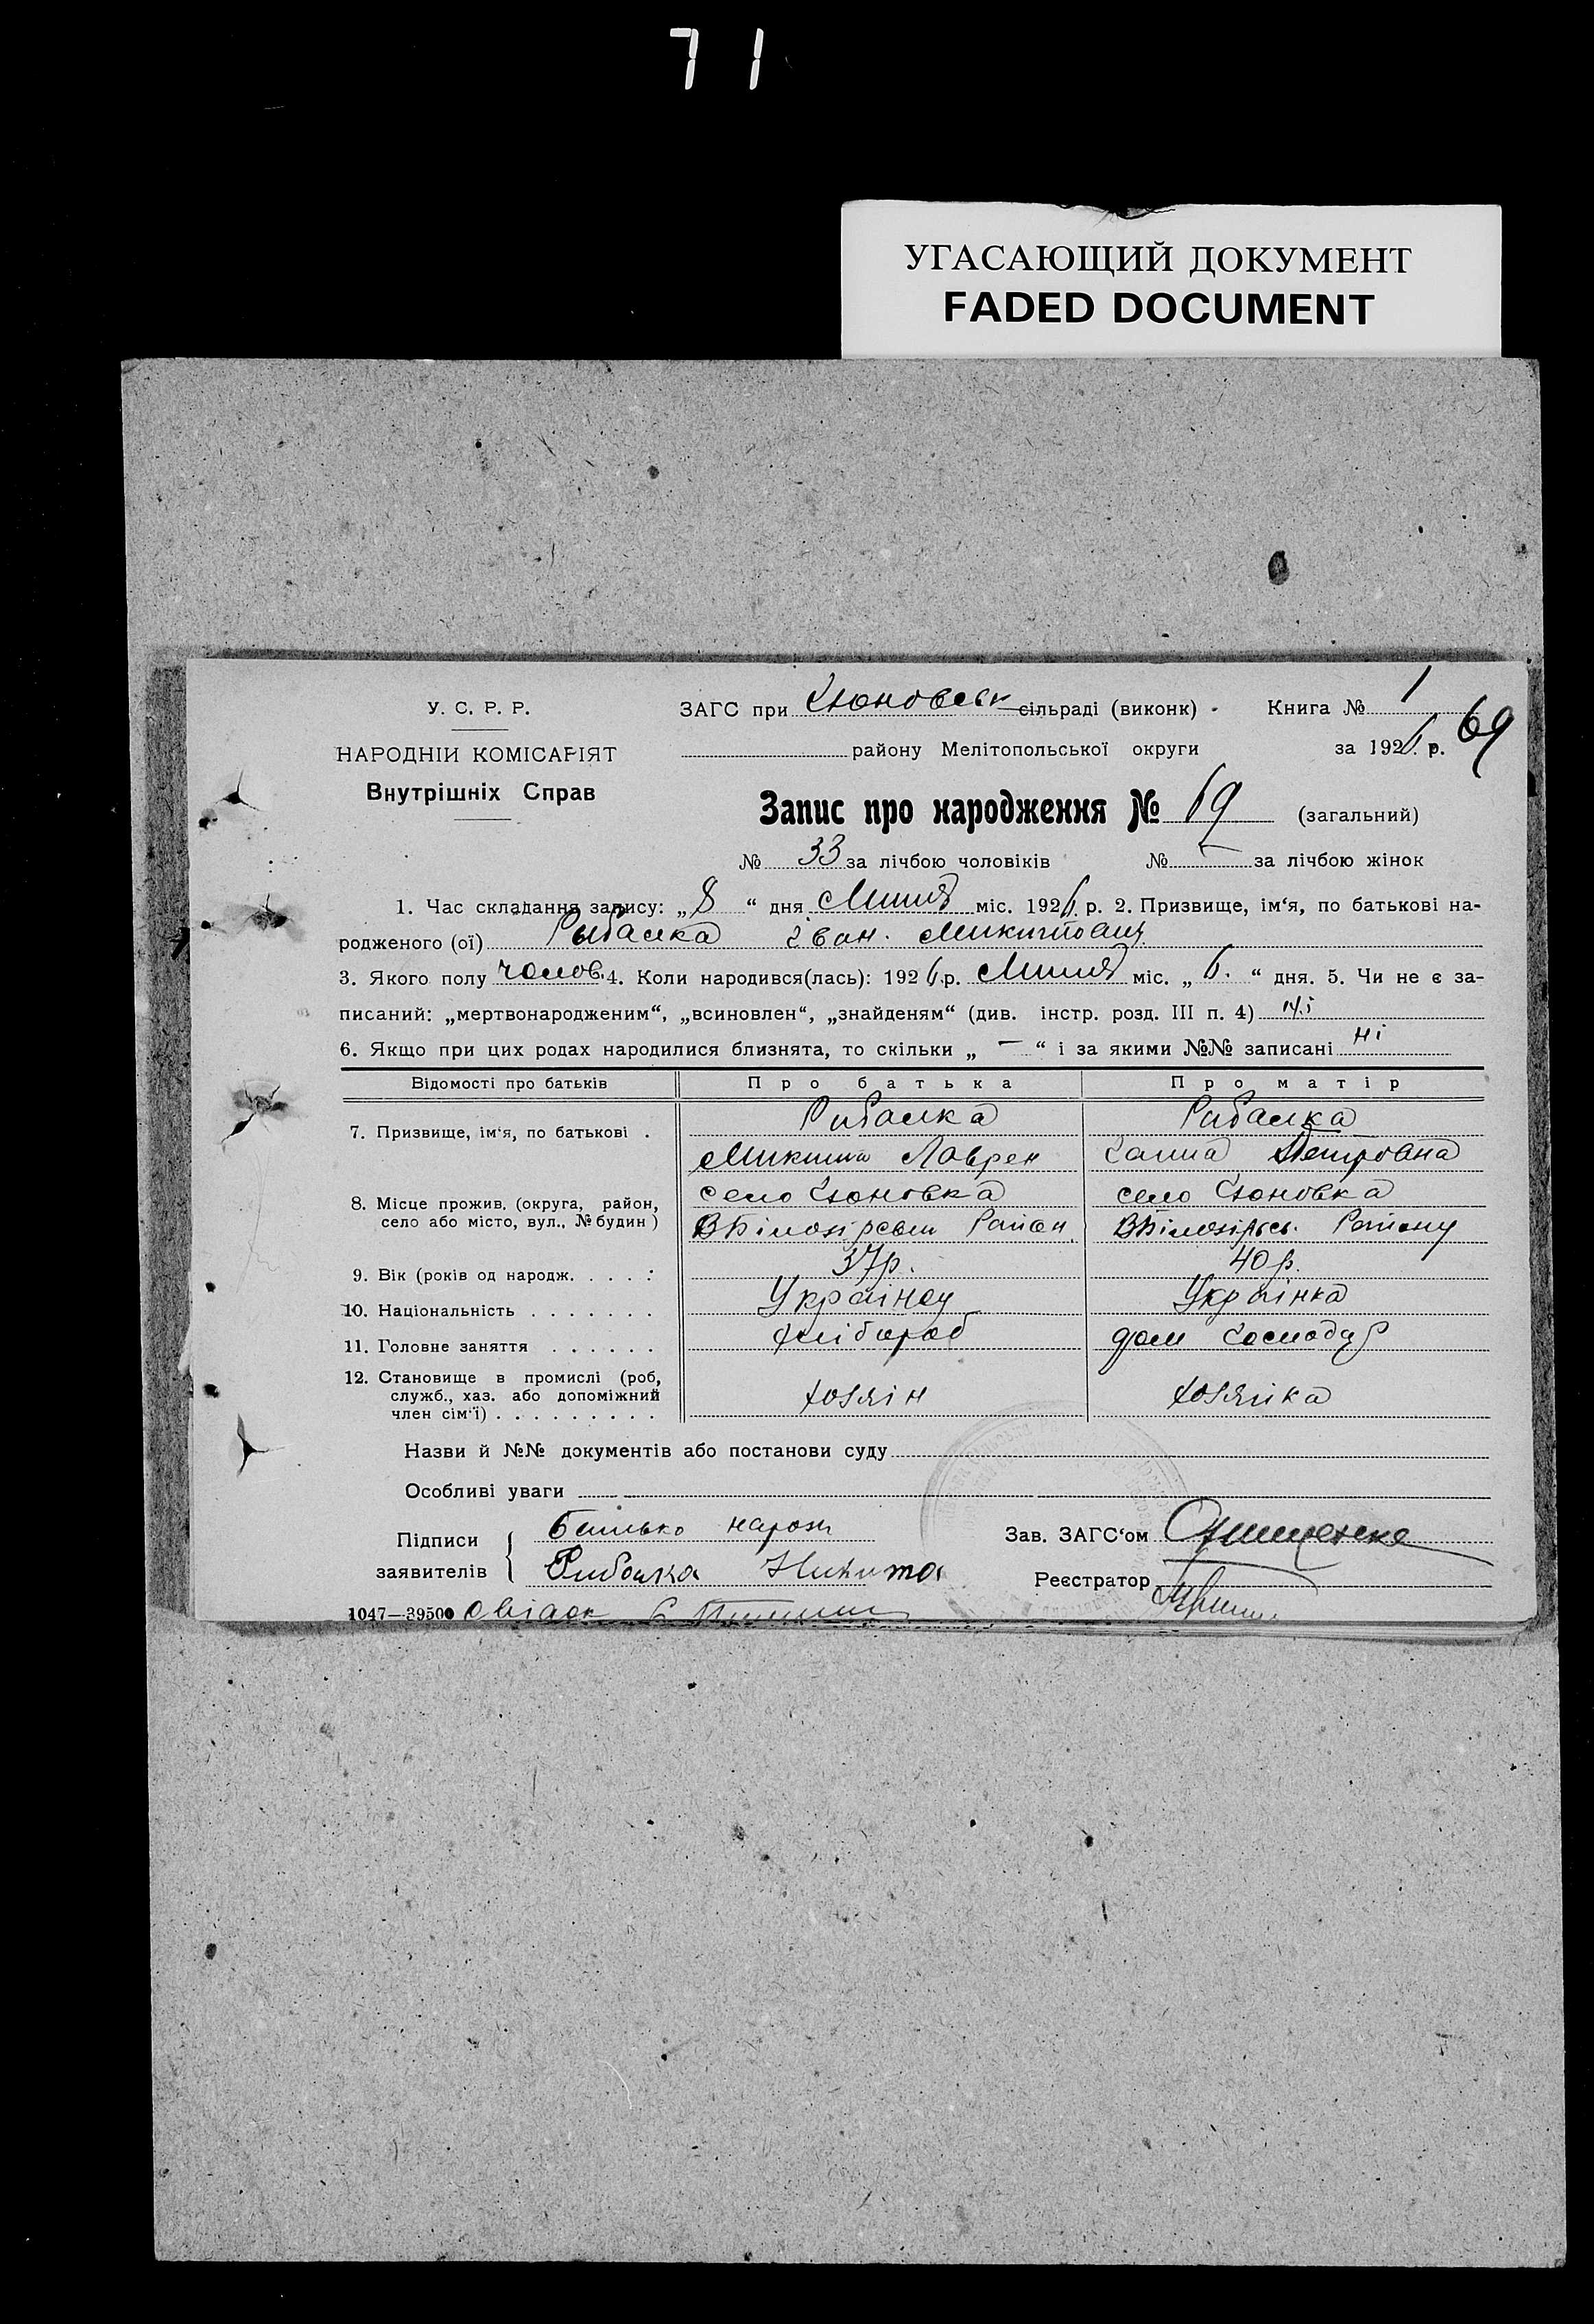 71
УГАСАЮЩИЙ ДОКУМЕНТ
FADED DOCUMENT
У. С. Р. Р.
НАРОДНІЙ КОМІСАРІЯТ
Внутрішніх Справ
ЗАГС при сільраді (виконк)
Книга № 1
району Мелітопольської округи
за 1926 р. 69
Запис про народження № 69 (загальний)
№ 33 за лічбою чоловіків № за лічбою жінок
1. Час складання запису: „8“ дня Липня міс. 1926. р. 2. Призвище, ім‘я, по батькові на-
родженого (ої) Рыбалка Іван.
3. Якого полу чолов. 4. Коли народився(лась): 1926.р. Липня міс. „6.“ дня. 5. Чи не є за-
писаний: „мертвонародженим“, „всиновлен“, „знайденям“ (див. інстр. розд. III п. 4) ні
6. Якщо при цих родах народилися близнята, то скільки „—“ і за якими №№ записані ні
Відомості про батьків Про батька Про матір
7. Призвище, ім‘я, по батькові . Рибалка Рибалка
Микита Лаврен Ганна Петровна
8. Місце прожив. (округа, район, село або місто, вул., № будин ) село село
Район. Району
9. Вік (років од народж. . . . : 37р. 40 р.
10. Національність . . . . . . . Українец Українка
11. Головне заняття . . . . . . хлібороб дом Господар
12. Становище в промислі (роб, служб., хаз. або допоміжний член сім‘ї) . . . . . . . . . хозяін хозяйка
Назви й №№ документів або постанови суду
Особливі уваги
Підписи заявителів { Батько
Рибалка Никита
Зав. ЗАГС‘ом
Реєстратор
1047—39500